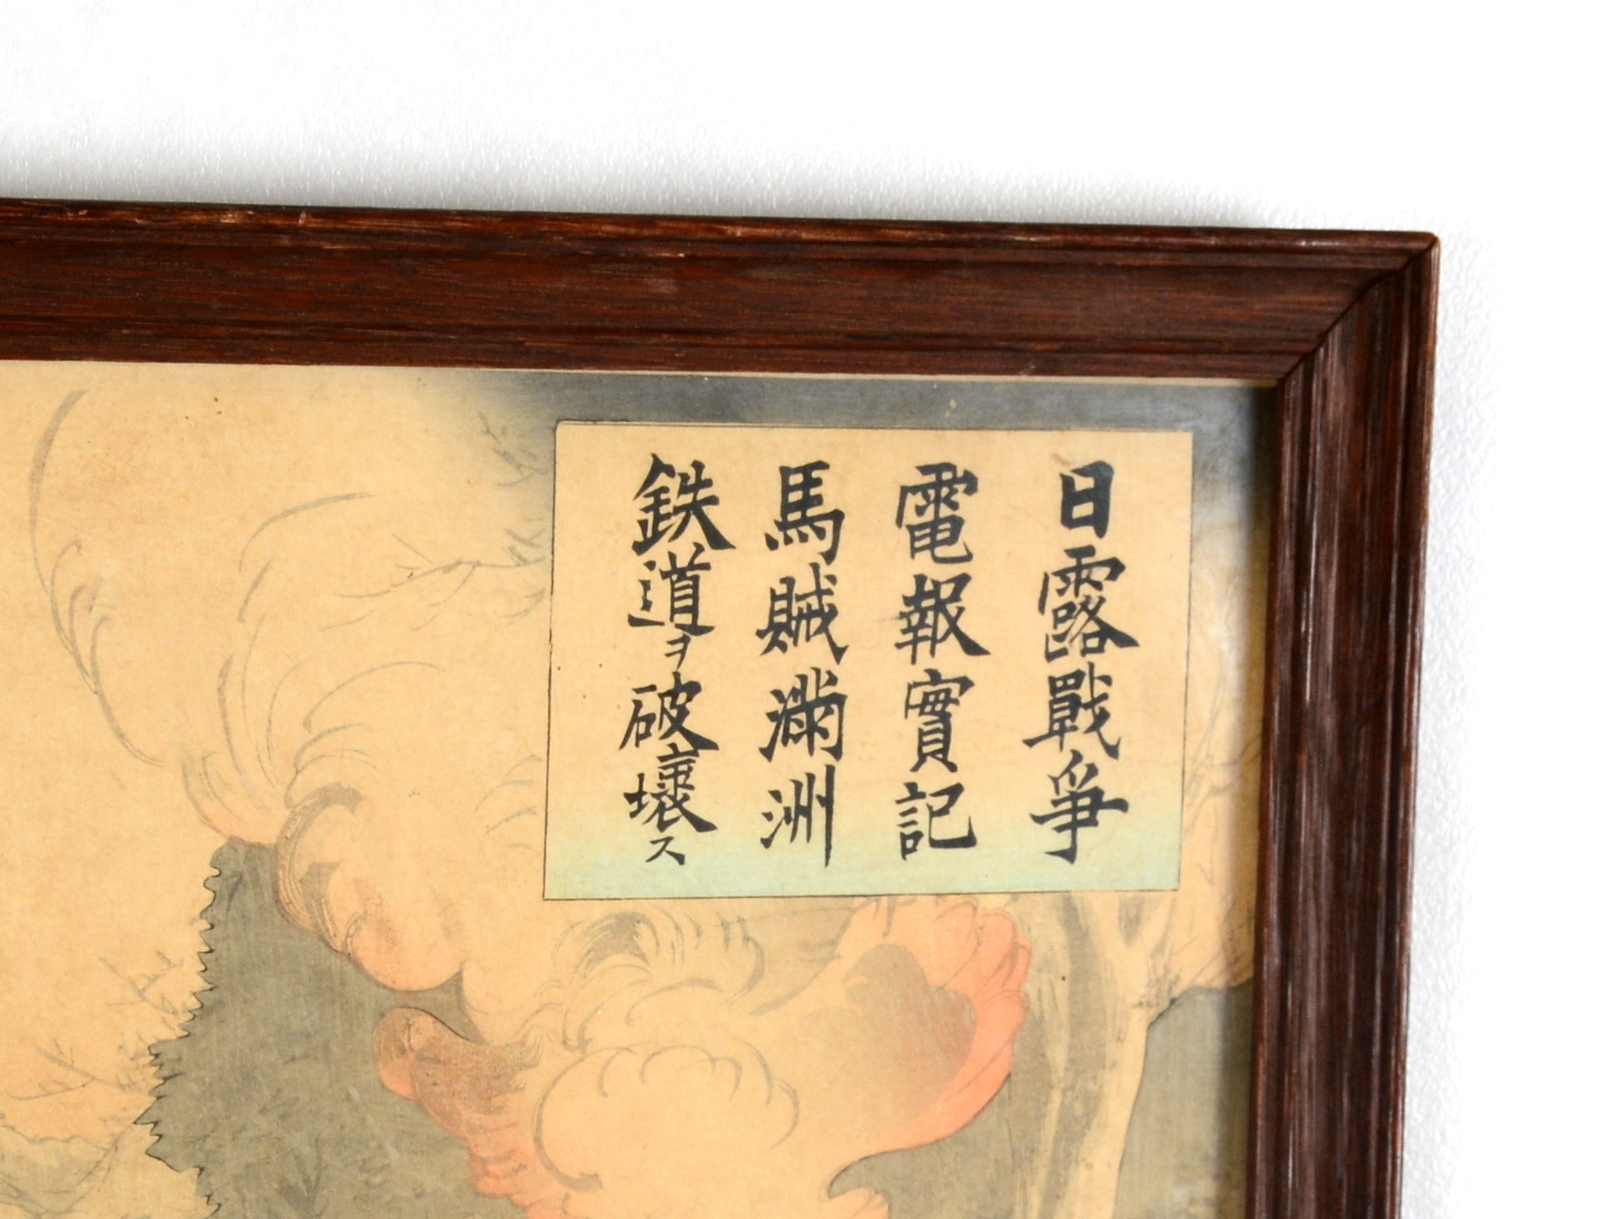 日露戰爭
電報實記
馬賊滿洲
鉄道ヲ破壞ス